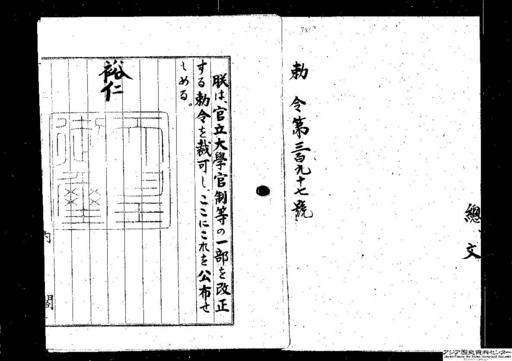 總、文
勅令第三百九十七號
朕は、官立大學官制等の一部を改正
する勅令を裁可し、ここにこれを公布せ
しめる。
裕仁
内閣
アジア歴史資料センター
Japan Center for Asian Historical Records